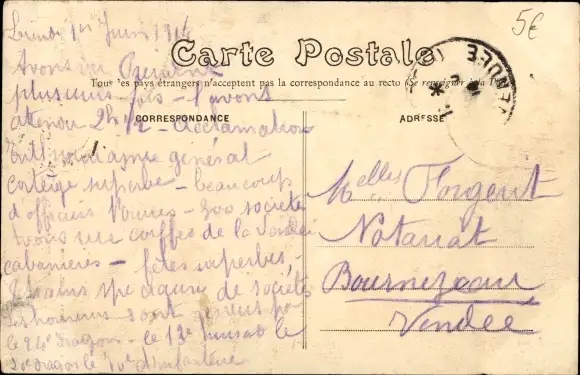 Lundi 1er Juin 1914
5€
Carte Postale
Tous les pays étrangers n'acceptent pas la correspondance au recto (Se renseigner à la
CORRESPONDANCE
ADRESSE
VENDEE
Avons vu Président
plusieurs fois - l'avons
attendu 2h 1/2 - acclamations
général
cortège superbe - beaucoup
d'officiers 300 sociétés
avons vu coiffes de la Vendée
cabanières - fêtes superbes -
trains de sociétés
Les honneurs sont rendus par
le 24e dragons - le 13e hussards le
20e dragons le d'infanterie
Melles Forgerit
Notariat
Bournezeau
Vendée